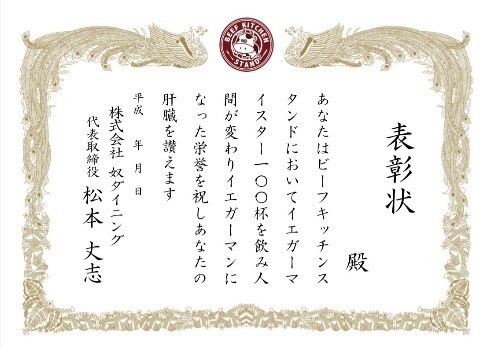 BEEF KITCHEN
STAND
表彰状
殿
あなたはビーフキッチンス
タンドにおいてイエガーマ
イスター一〇〇杯を飲み人
間が変わりイエガーマンに
なった栄誉を祝しあなたの
肝臓を讃えます
平成　年　月　日
株式会社 奴ダイニング
代表取締役 松本 丈志